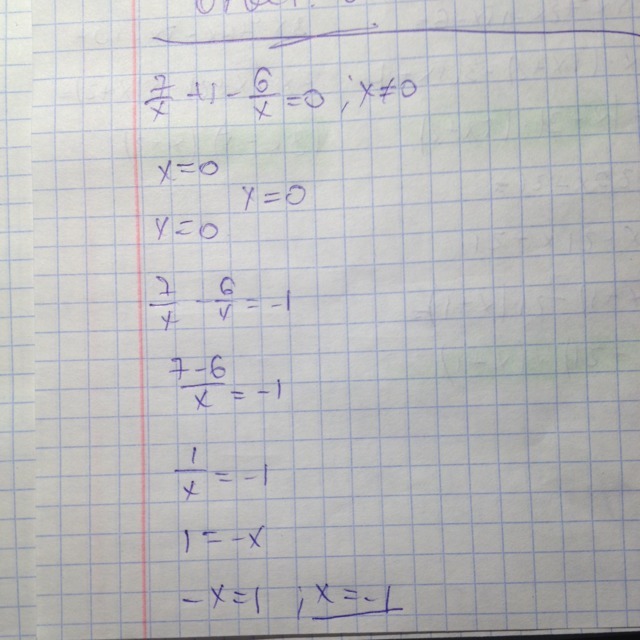 7/x + 1 - 6/x = 0 ; x ≠ 0
x = 0
x = 0
x = 0
7/x - 6/x = -1
7-6/x = -1
1/x = -1
1 = -x
-x = 1 ; x = -1